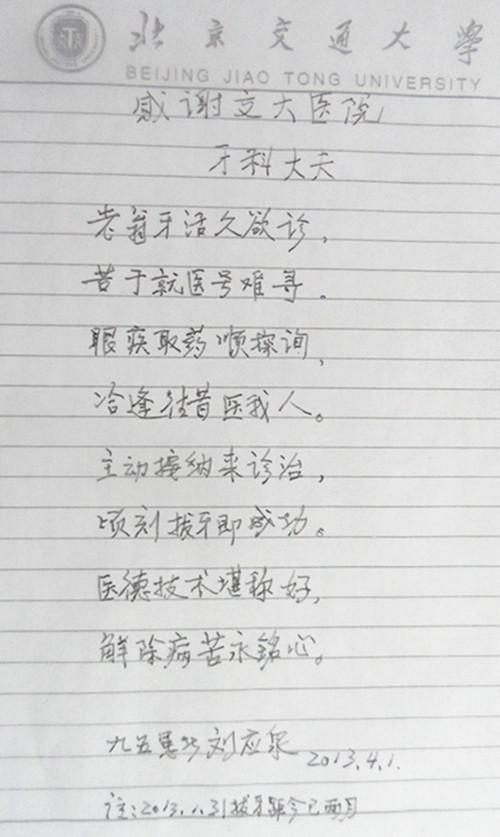 北京交通大学
BEIJING JIAO TONG UNIVERSITY
感谢交大医院
牙科大夫
老翁牙活久欲诊，
苦于就医号难寻。
眼疾取药顺探询，
恰逢往昔医我人。
主动接纳来诊治，
顷刻拔牙即成功。
医德技术堪称好，
解除病苦永铭心。
九五 刘应泉 2013.4.1.
注：2013.1.31拔牙距今已两月